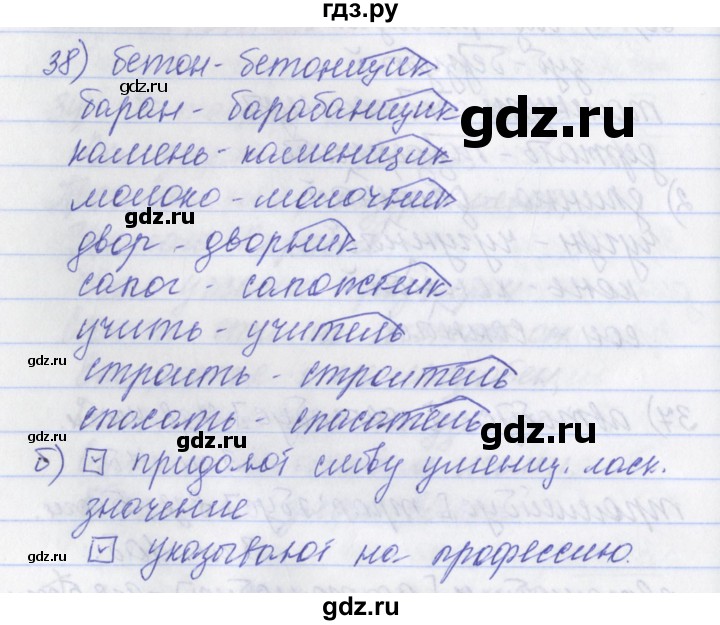 гдз.ру
38) бетон - бетонщик
баран - барабанщик
gdz.ru
камень - каменщик
молоко - молочник
gdz.ru
двор - дворник
сапог - сапожник
учить - учитель
gdz.ru
строить - строитель
gdz.ru
спасать - спасатель
gdz.ru
б) придают слову уменш. ласк.
значение
gdz.ru
указывают на профессию.
gdz.ru